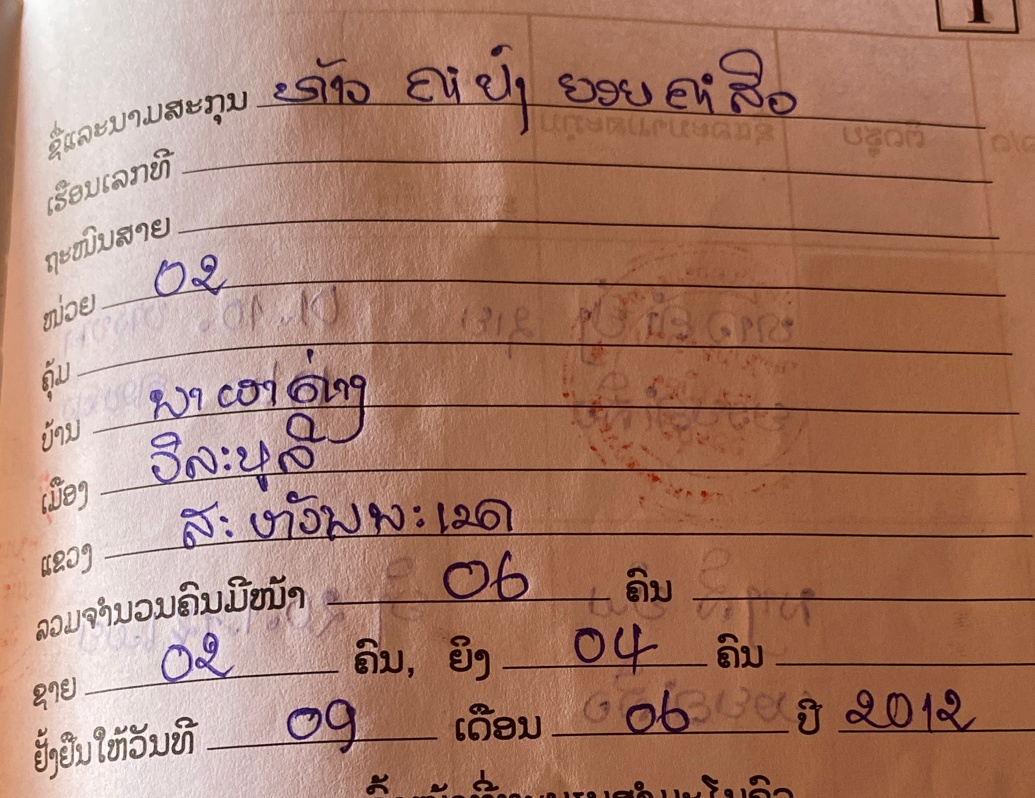 1
ຊື່ແລະນາມສະກຸນ ທ້າວ ຄໍາປັ່ງ ຍອຍຄໍາສືວ
ເຮືອນເລກທີ
ຖະໜົນສາຍ
ໜ່ວຍ 02
ຄຸ້ມ
ບ້ານ ນາເຫາຄ່າງ
ເມືອງ ວິລະບູລີ
ແຂວງ ສະຫວັນນະເຂດ
ລວມຈຳນວນຄົນມີໜ້າ 06 ຄົນ
ຊາຍ 02 ຄົນ, ຍິງ 04 ຄົນ
ຢັ້ງຢືນໃຫ້ວັນທີ 09 ເດືອນ 06 ປີ 2012